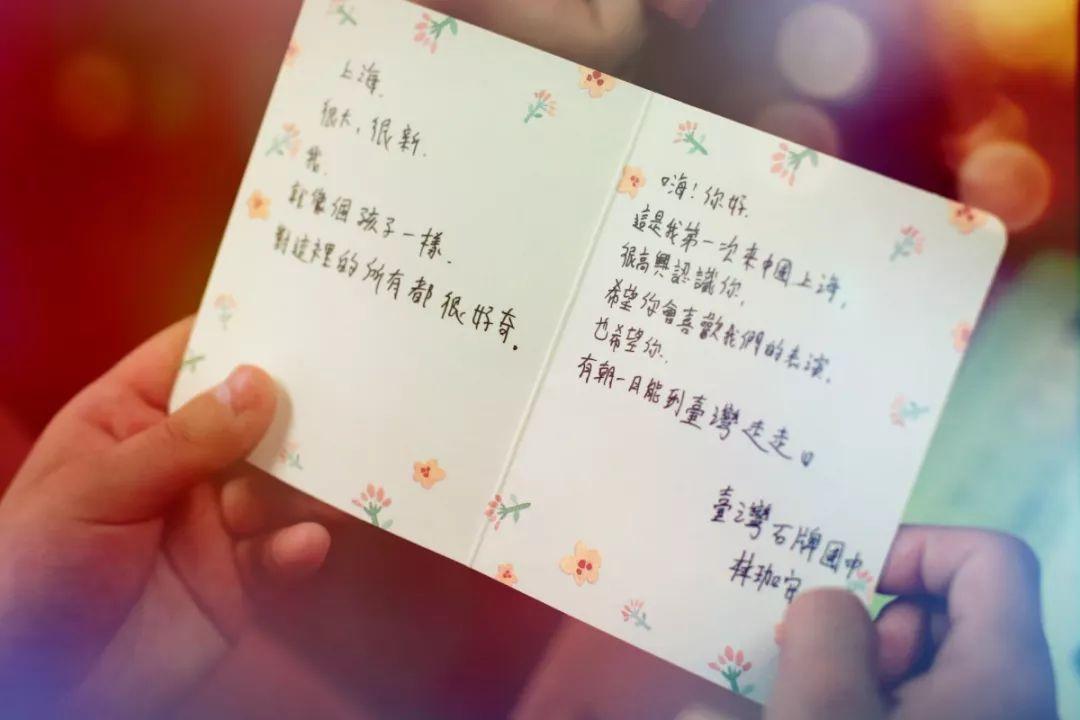 上海.
很大,很新.
我.
就像個孩子一樣.
對這裡的所有都很好奇。
嗨!你好.
這是我第一次來中國上海.
很高興認識你.
希望你會喜歡我們的表演.
也希望你.
有朝一日能到臺灣走走
臺灣石牌國中
林珈安